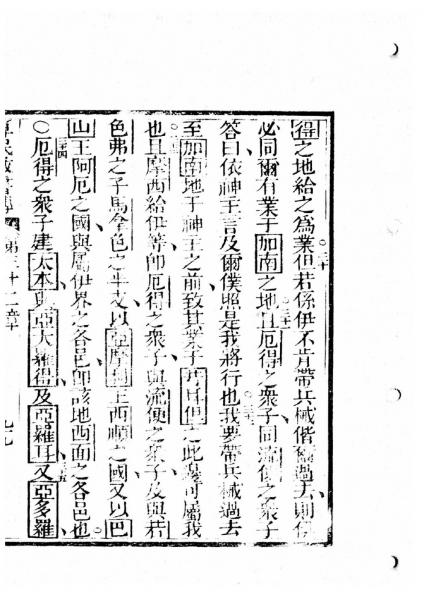 得之地給之為業但若係伊不肯帶兵械偕爾過去則伊
必同爾有業于加南之地且厄得之衆子同流便之衆子
答曰依神主言及爾僕照是我將行也我要帶兵械過去
至加南地于神主之前致其業于耳但之此邊可屬我
也且摩西給伊等即厄得之衆子與流便之衆子及與若
色弗之子馬拿色之半支以亞摩利王西順之國又以巴
山王阿厄之國與屬伊界之各邑即該地西面之各邑也
○厄得之衆子建太本與亞大羅得及亞羅耳又亞多羅
第三十二章